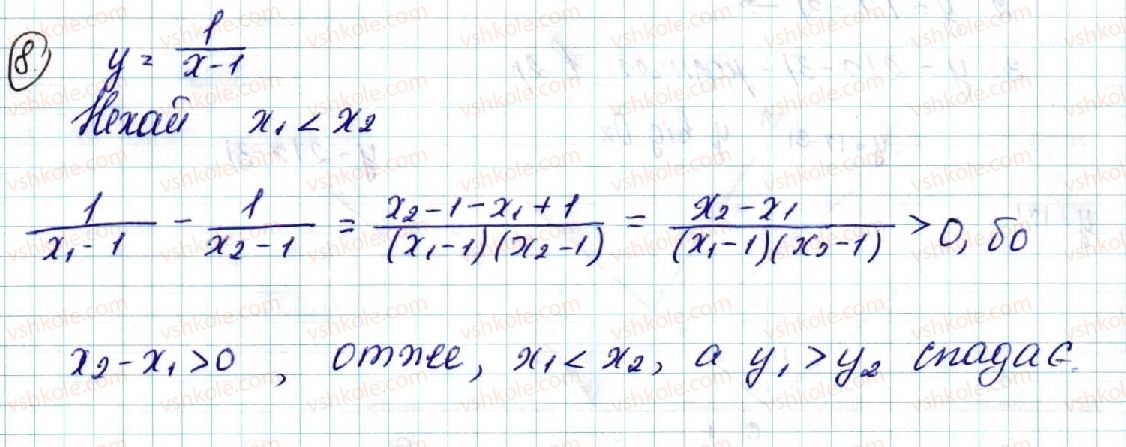 8) y = 1/(x-1)
Нехай x₁ < x₂
1/(x₁-1) - 1/(x₂-1) = (x₂-1-x₁+1)/((x₁-1)(x₂-1)) = (x₂-x₁)/((x₁-1)(x₂-1)) > 0, бо
x₂-x₁>0, отже, x₁<x₂, а y₁>y₂ спадає.